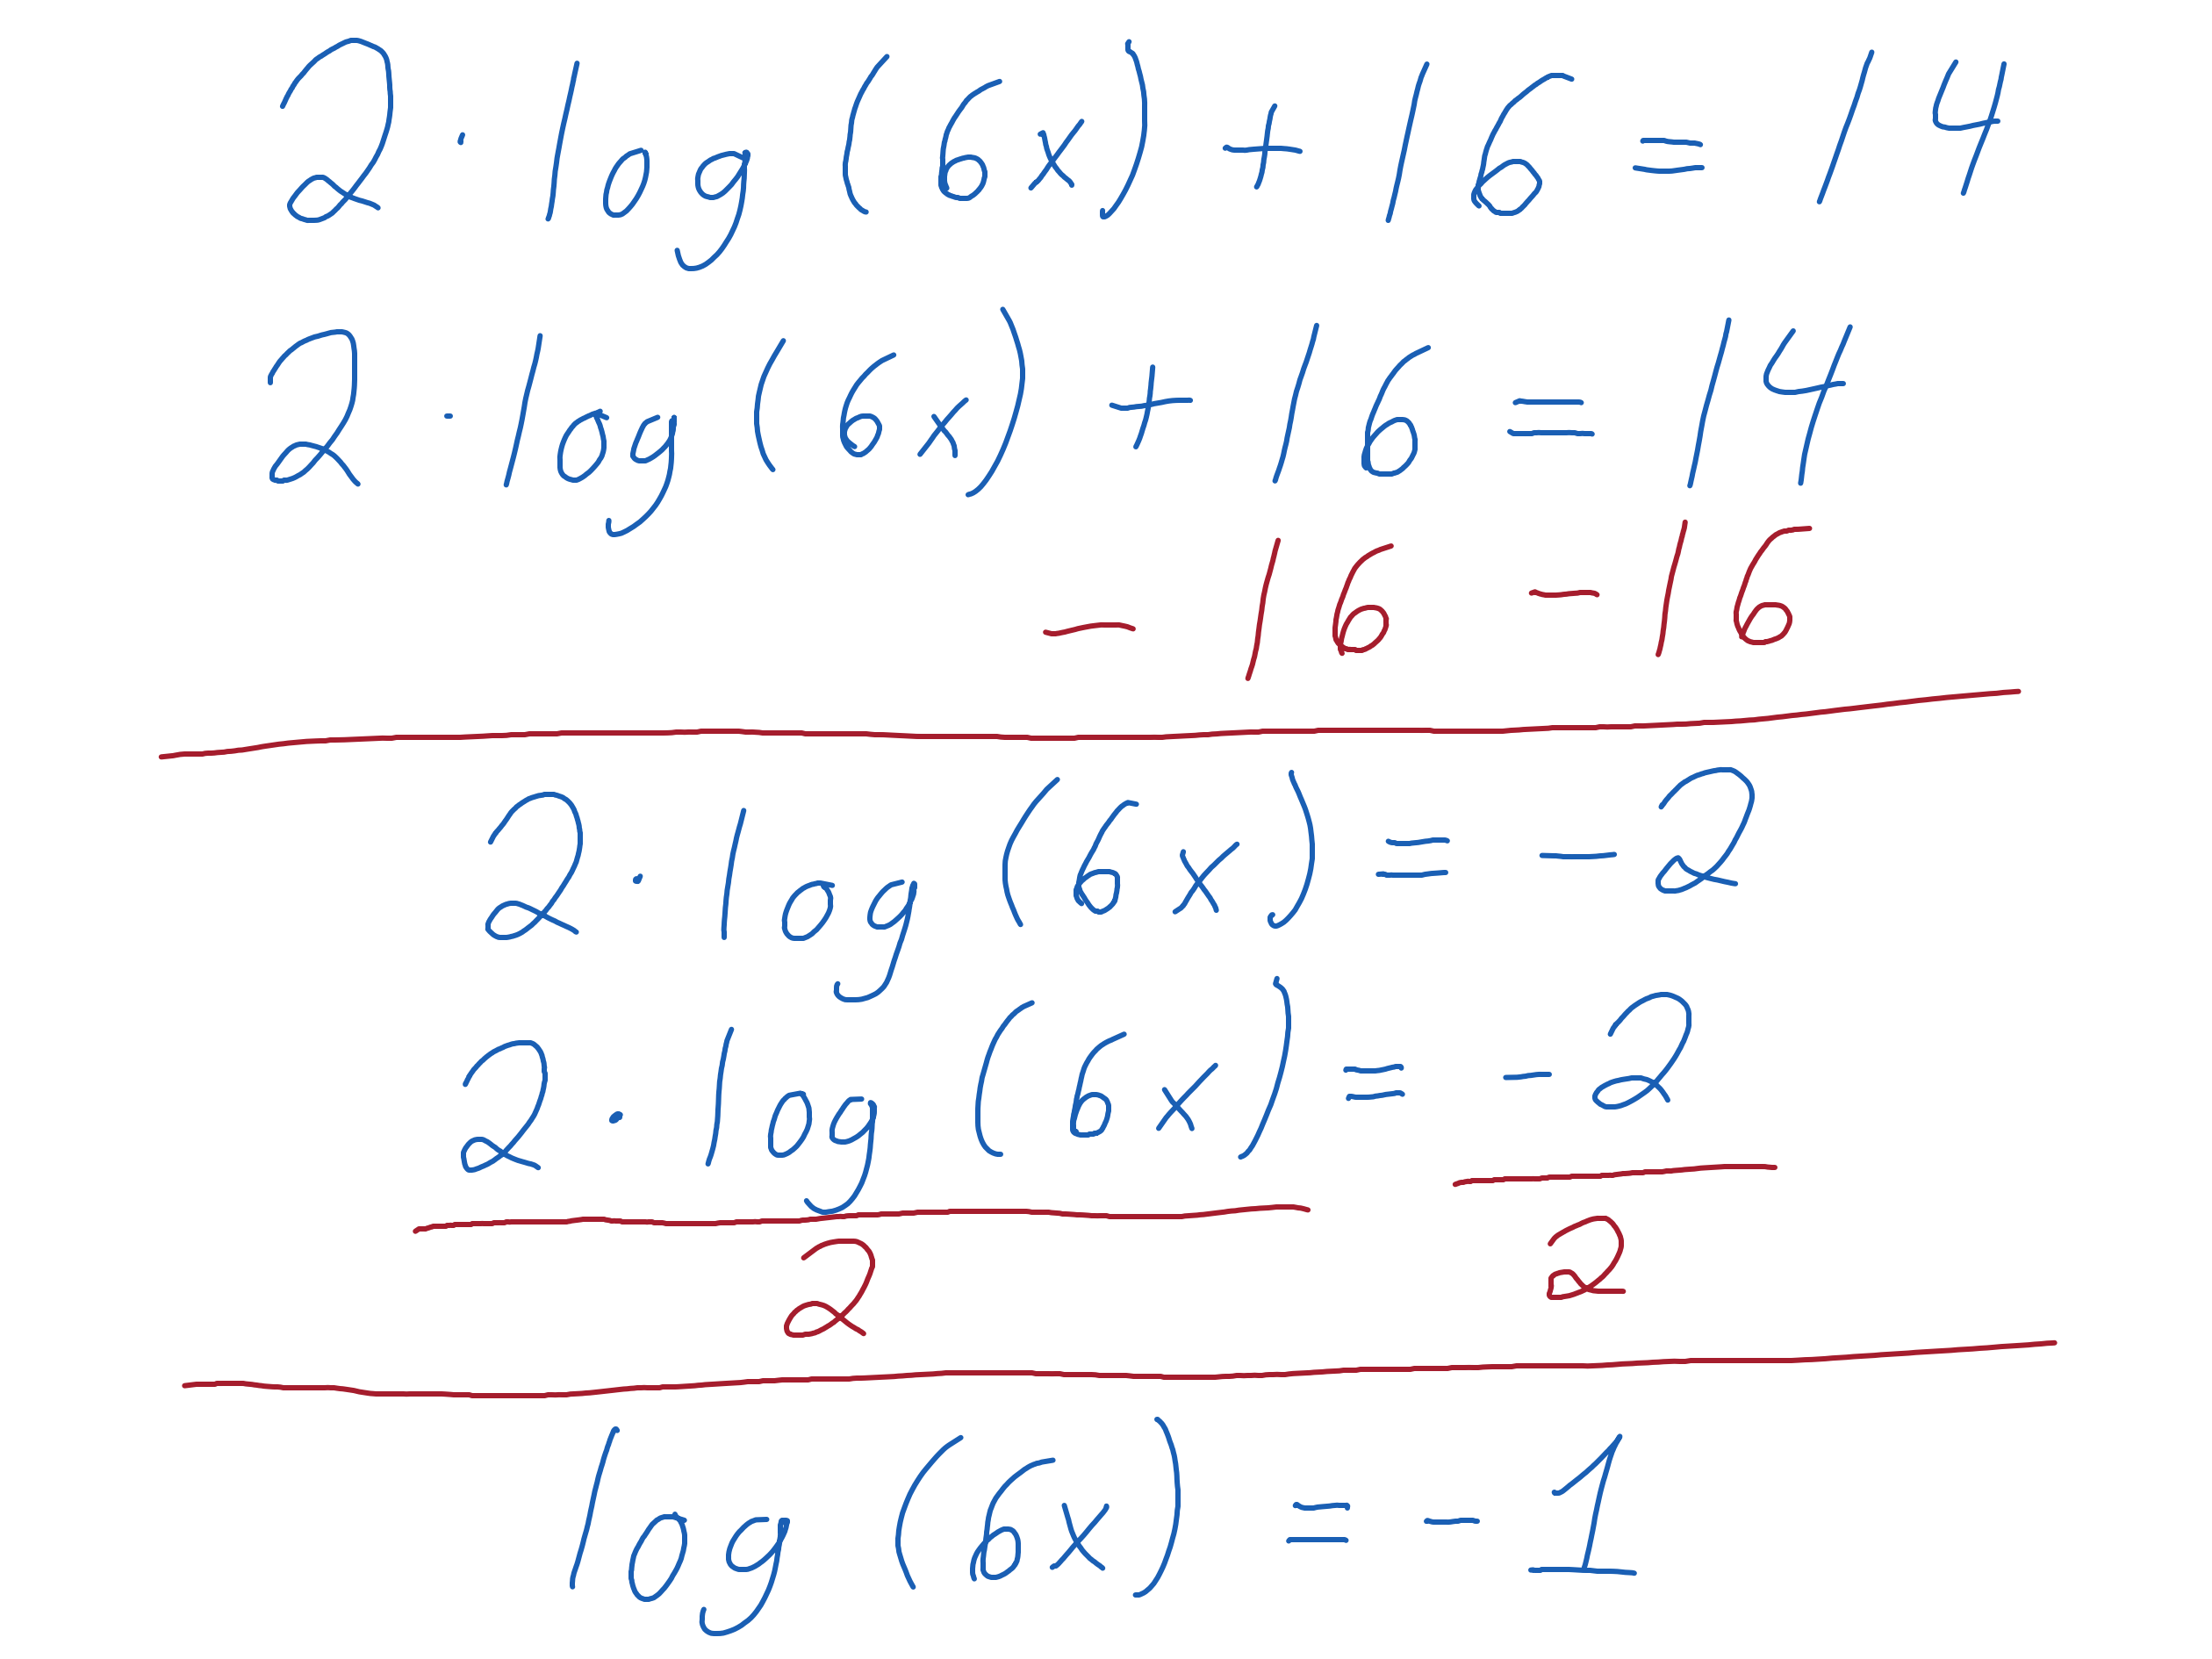 2 · log (6x) + 16 = 14
2 · log (6x) + 16 = 14
- 16 - 16
2 · log (6x) = -2
2 · log (6x) = -2
2 2
log (6x) = -1